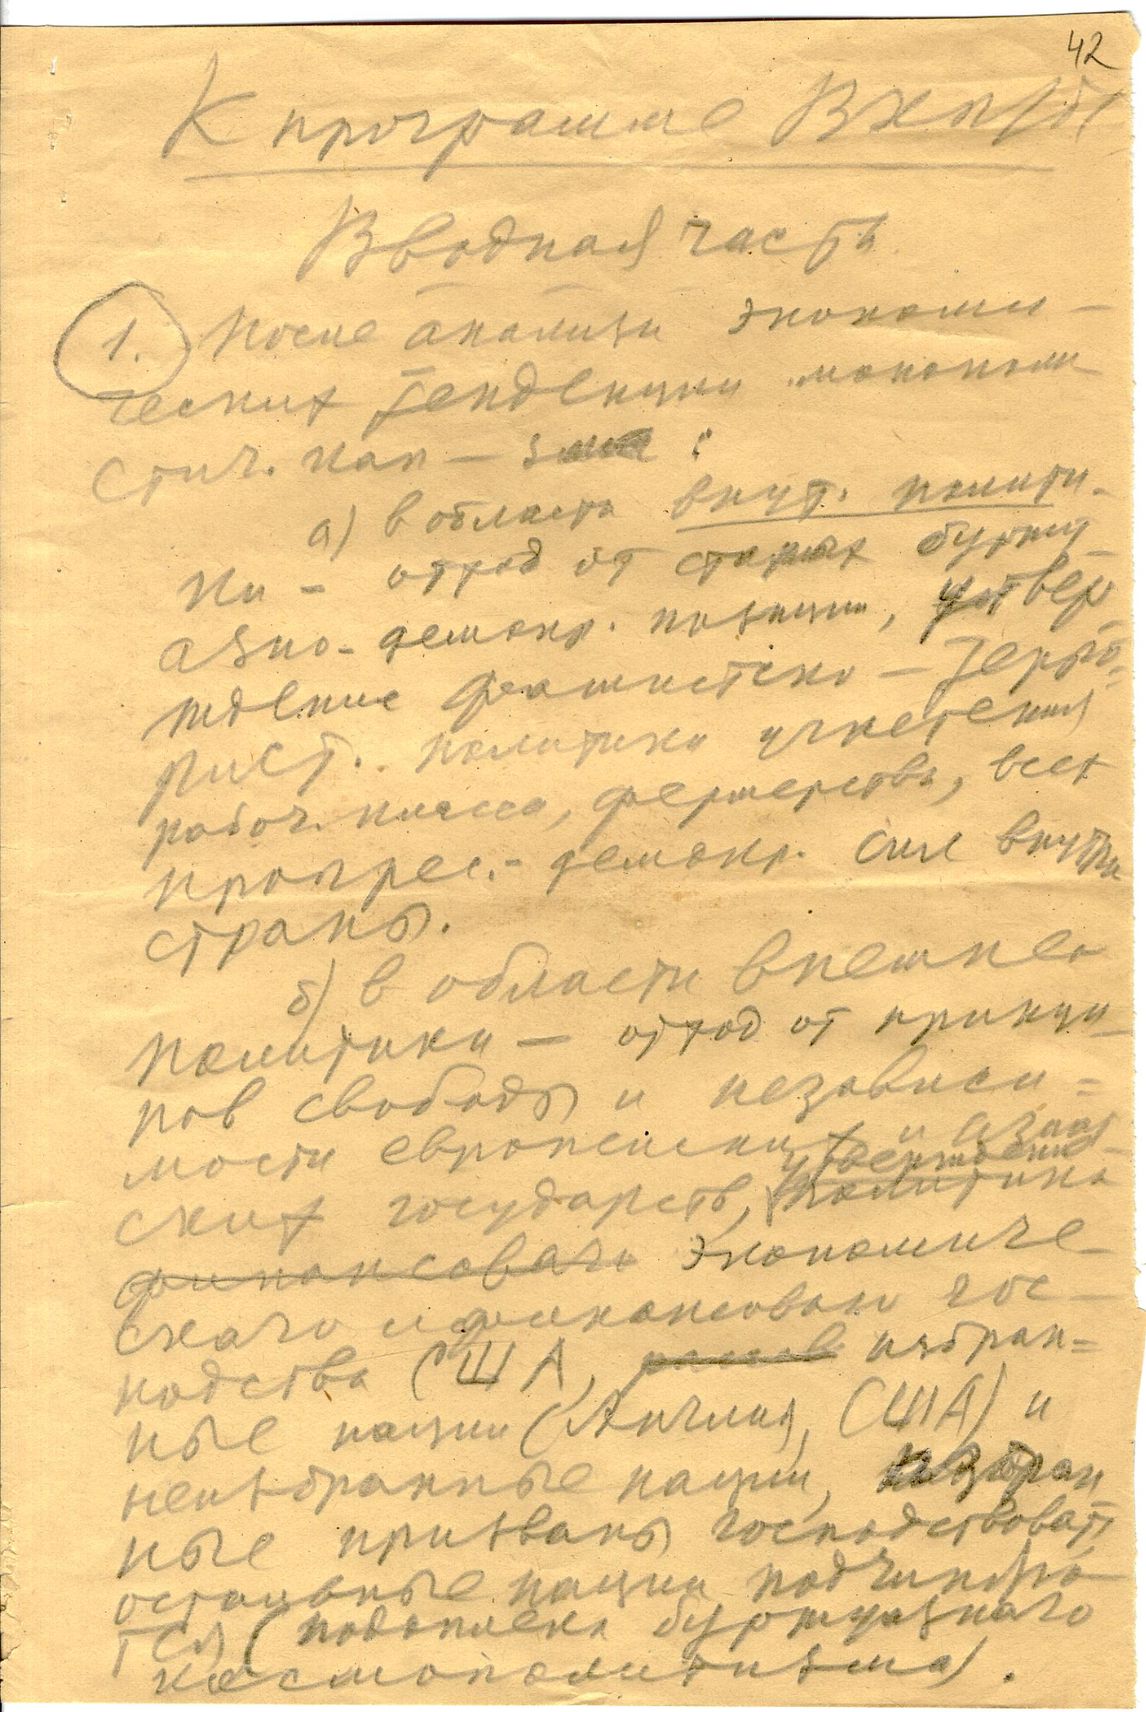 42
К программе ВКП(б)
Вводная часть
1. После анализа экономи-
ческих тенденции монополи
стич. кап-зма:
а) в области внут. полити-
ки – отход от старых буржу-
азно-демокр. позиции, утвер
ждение фашистско-терро-
рист. политики угнетения
рабоч. класса, фермерства, всех
прогрес.-демокр. сил внутри
страны.
б) в области внешней
политики – отход от принци-
пов свободы и независи-
мости европейских и азиат
утверждение
ских государств, политика
финансового экономиче-
ского и финансового гос-
подства США, избран-
ные нации (Англия, США) и
неизбранные нации, избран
ные призваны господствовать
остальные нации подчинять
ся) (подоплека буржуазного
космополитизма).